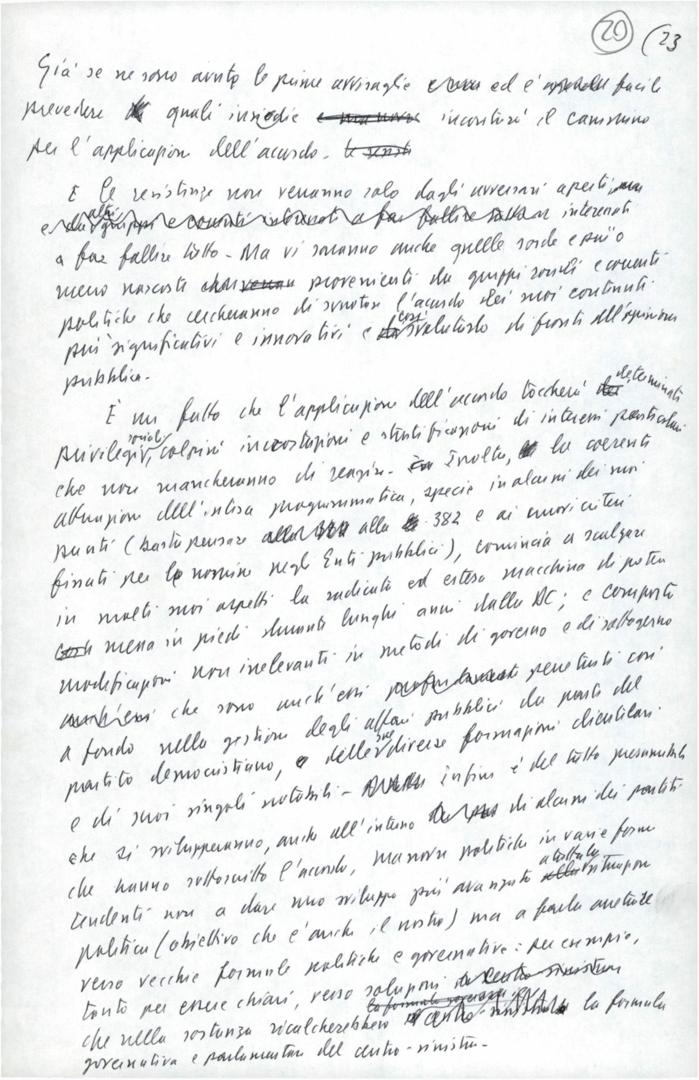 20 (23
Già se ne sono avute le prime avvisaglie ed è facile
prevedere quali insidie incontrerà il cammino
per l'applicazione dell'accordo.
E le resistenze non verranno solo dagli avversari aperti
e altri interessati
a far fallire tutto. Ma vi saranno anche quelle sorde e più o
meno nascoste provenienti da gruppi sociali e correnti
politiche che cercheranno di svuotare l'accordo dei suoi contenuti
più significativi e innovativi e così svalutarlo di fronte all'opinione
pubblica.
È un fatto che l'applicazione dell'accordo toccherà determinati
privilegi sociali, colpirà incrostazioni e stratificazioni di interessi particolari
che non mancheranno di reagire. Inoltre, la coerente
attuazione dell'intesa programmatica, specie in alcuni dei suoi
punti (basta pensare alla 382 e ai nuovi criteri
fissati per le nomine negli Enti pubblici), comincia a scalzare
in molti suoi aspetti la radicata ed estesa macchina di potere
messa in piedi durante lunghi anni dalla DC; e comporta
modificazioni non irrilevanti in metodi di governo e di sottogoverno
che sono anch'essi penetrati così
a fondo nella gestione degli affari pubblici da parte del
partito democristiano, delle sue diverse formazioni clientelari
e di suoi singoli notabili. Infine è del tutto presumibile
che si svilupperanno, anche all'interno di alcuni dei partiti
che hanno sottoscritto l'accordo, manovre politiche in varie forme
tendenti non a dare uno sviluppo più avanzato a tutta la situazione
politica (obiettivo che è anche il nostro) ma a farla arretrare
verso vecchie formule politiche e governative: per esempio,
tanto per essere chiari, verso soluzioni
che nella sostanza ricalcherebbero la formula
governativa e parlamentare del centro-sinistra.